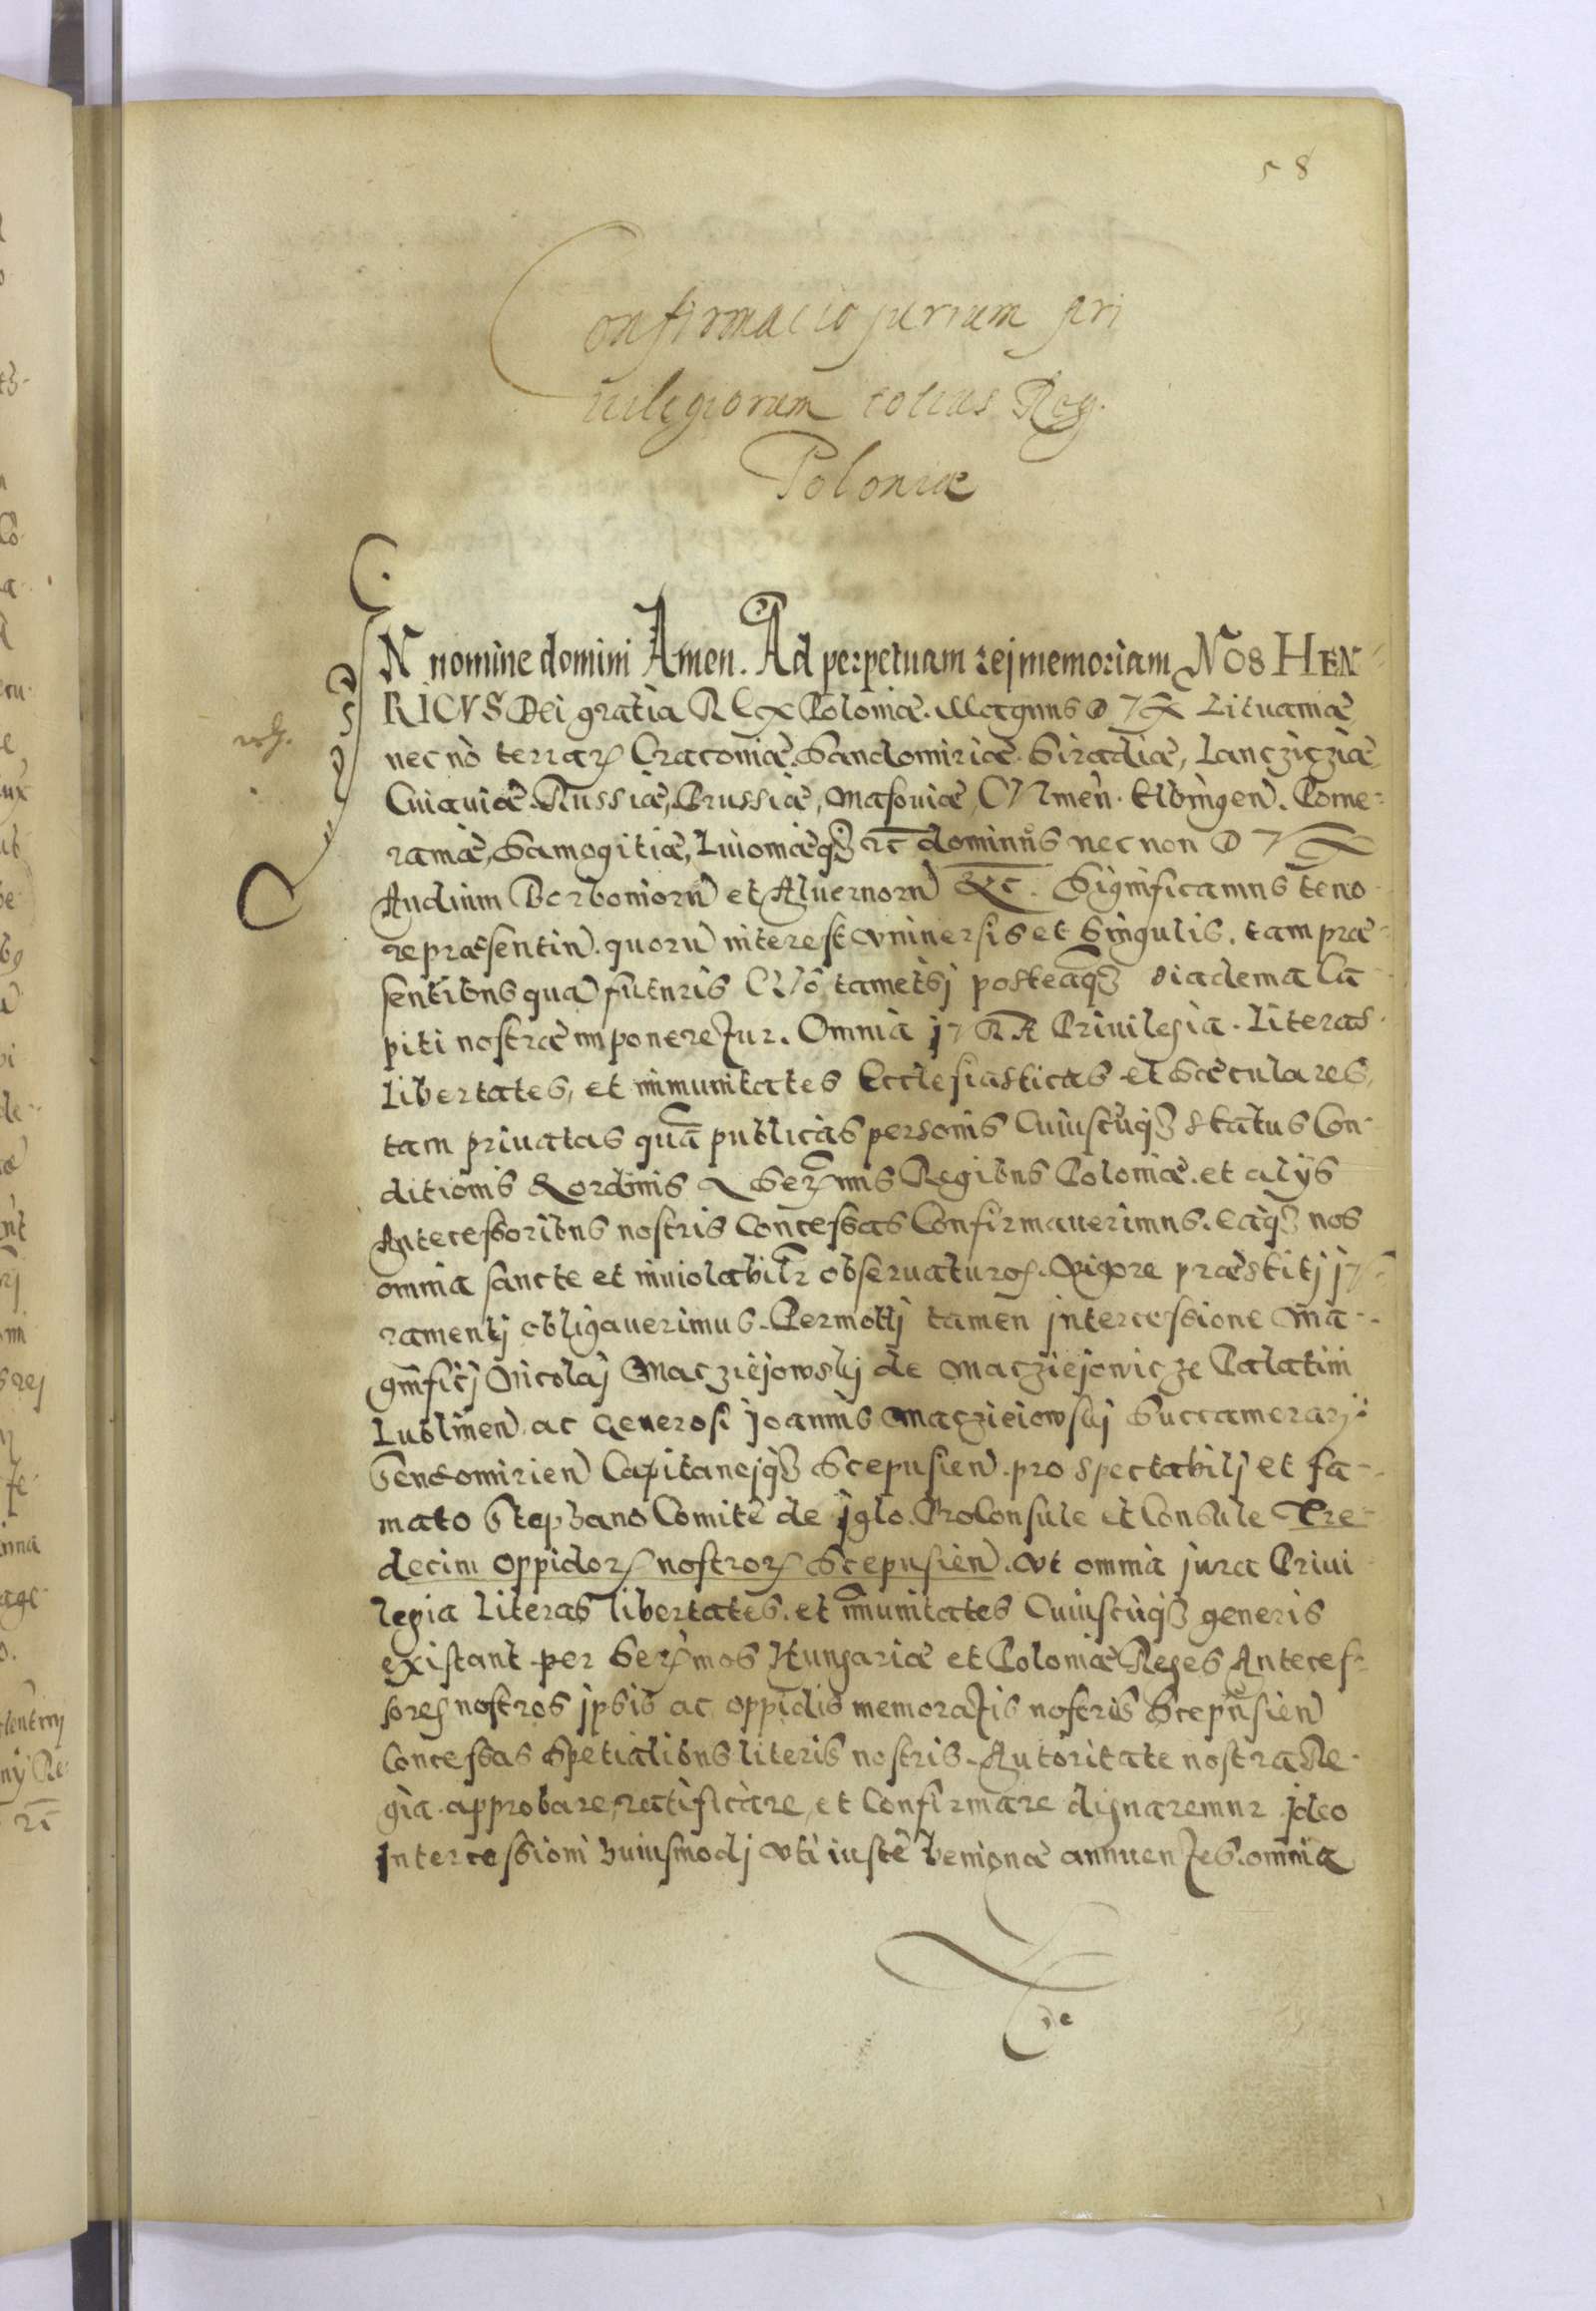 58
Confirmacio jurium pri
uilegiorum totius Reg.
Poloniæ
IN nomine domini Amen. Ad perpetuam rej memoriam NOS HEN-
RICVS Dei gratia Rex Poloniæ. Magnus Dux Lituaniæ
nec nō terraꝝ Cracoviæ. Sandomiriæ. Siradiæ, Lancziciæ
Cuiaviæ. Russiæ, Prussiæ, Masoviæ, CVlmēn. Elbingen̄. Pome-
raniæ, Samogitiæ, Livoniæqȝ ꝛc̄ dominus nec non DVX
Andium Borboniorū et Aluernorū &c. Significamus teno
re præsentiū. quorū interest vniuersis et singulis. tam præ-
sentibus quā futuris QVO tametsj posteaqȝ diadema Ca-
piti nostræ imponeretur. Omnia jVRA Priuilegia. Literas.
Libertates, et immunitates Ecclesiasticas et sæculares,
tam priuatas quā publicas personis Cuiuscūqȝ status Con-
ditionis & ordinis a Serꝫmis Regibus Poloniæ. et alijs
Antecessoribus nostris Concessas Confirmauerimus. Eaqȝ nos
omnia sancte et inuiolabilr̄ obseruaturos. Vigore præstitj jV-
ramentj obligauerimus. Permottj tamen jntercessione Ma-
gnificj Nicolaj Macziejowskj de Macziejowicze Palatini
Lublinen̄. ac Generosi Joannis Macziejowskj Succamerarij
Sendomirien̄ Capitanejqȝ Scepusien̄. pro spectabilj et fa-
mato Stephano Comite de jglo. Proconsule et Consule Tre-
decim oppidoꝝ nostroꝝ Scepusien̄. vt omnia jura Priui
legia Literas libertates. et immunitates Cuiuscūqȝ generis
existant per Serꝫmos Hungariæ et Poloniæ Reges Anteces-
sores nostros jpsis ac oppidis memoratis nostris Scepusien̄
Concessas Spetialibus literis nostris. Autoritate nostra Re-
gia. approbare, ratificare, et Confirmare dignaremur. jdeo
jntercessioni huiusmodj vti iustè benignæ annuentes. omnia